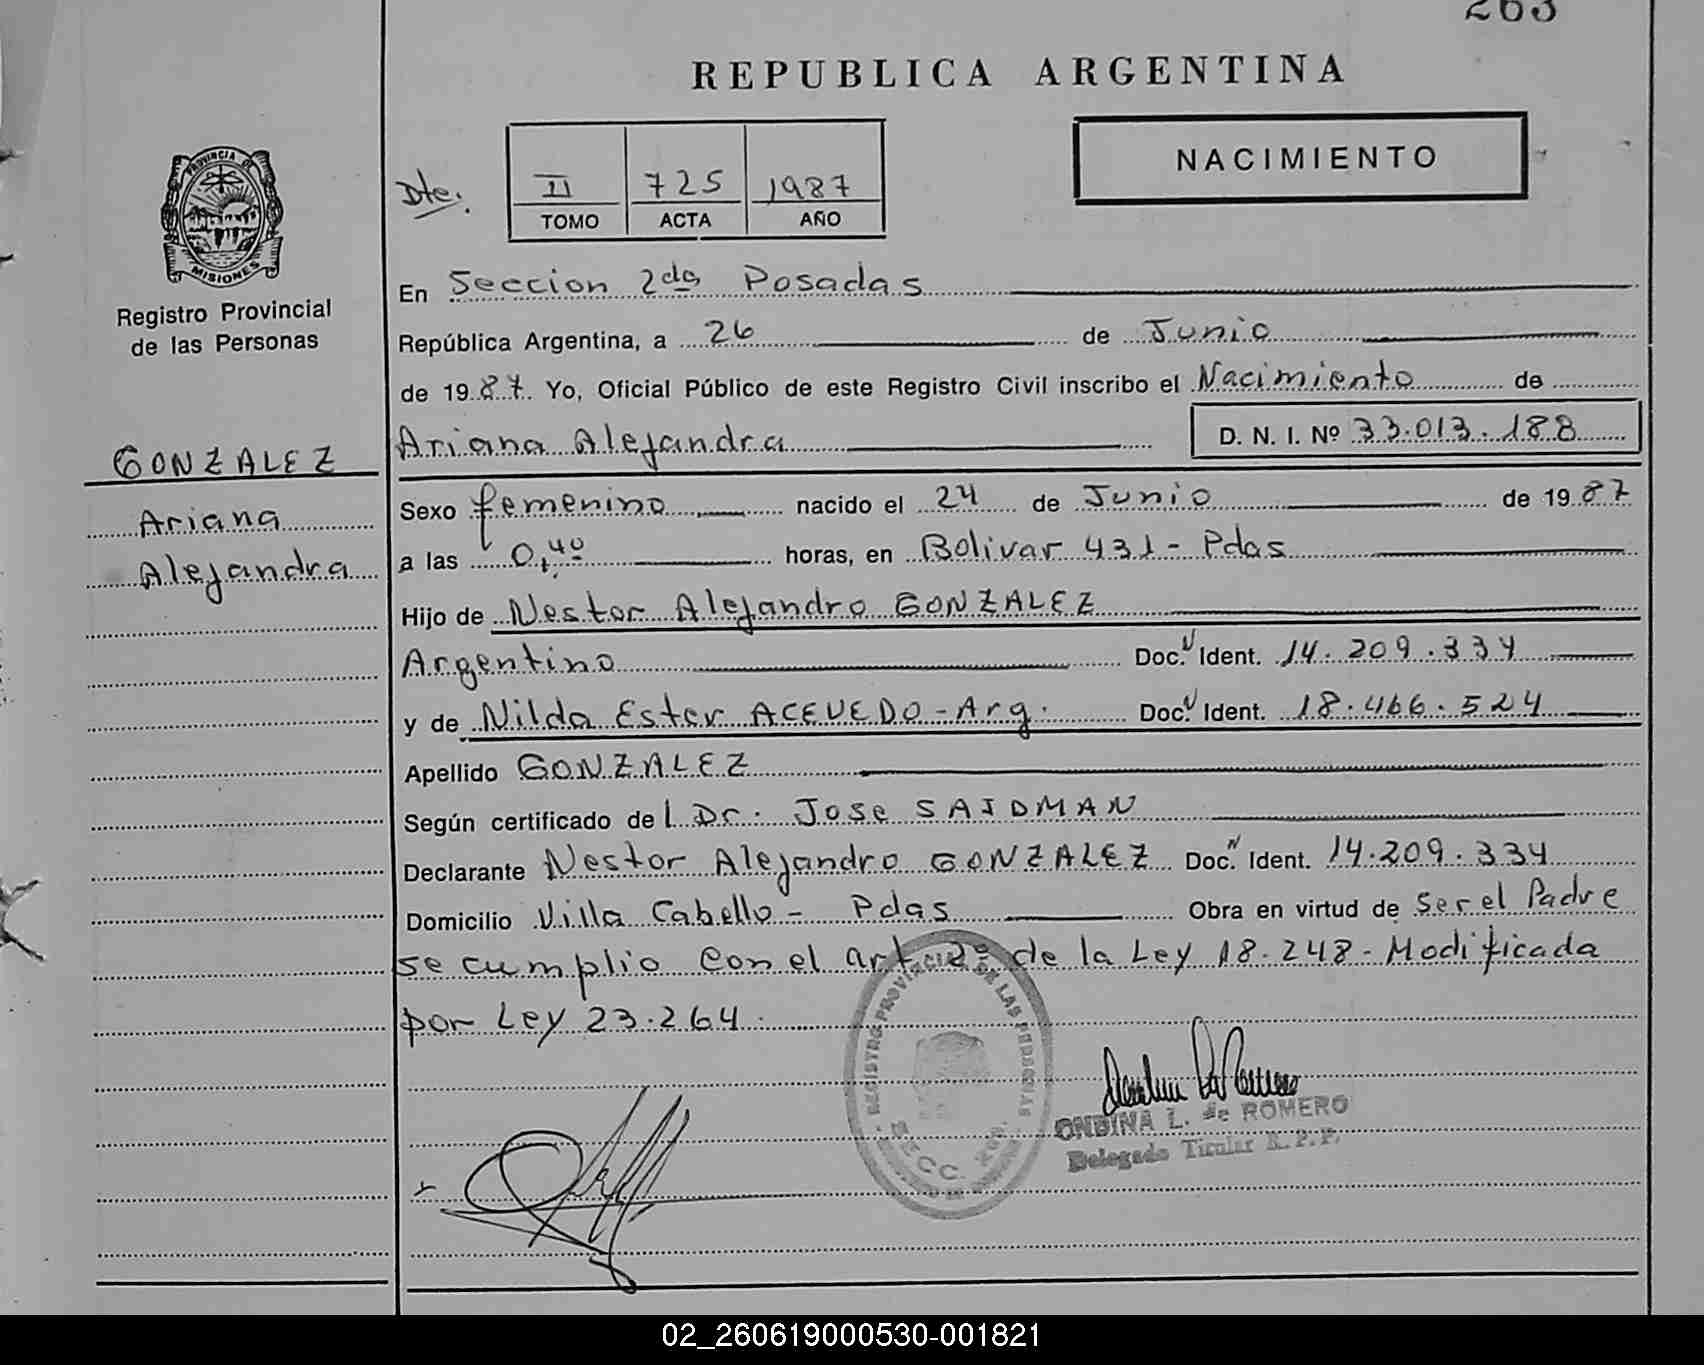 263
REPUBLICA ARGENTINA
NACIMIENTO
Dte.
II 725 1987
TOMO ACTA AÑO
PROVINCIA DE
MISIONES
Registro Provincial
de las Personas
GONZALEZ
Ariana
Alejandra
En Seccion 2da Posadas
República Argentina, a 26 de Junio
de 1987. Yo, Oficial Público de este Registro Civil inscribo el Nacimiento de
Ariana Alejandra D. N. I. Nº 33.013.188
Sexo femenino nacido el 24 de Junio de 1987
a las 0,40 horas, en Bolivar 431 - Pdas
Hijo de Nestor Alejandro GONZALEZ
Argentino Doc. Ident. 14.209.334
y de Nilda Ester ACEVEDO - Arg. Doc. Ident. 18.466.524
Apellido GONZALEZ
Según certificado del Dr. Jose SAIDMAN
Declarante Nestor Alejandro GONZALEZ Doc. Ident. 14.209.334
Domicilio Villa Cabello - Pdas Obra en virtud de Ser el Padre
se cumplio con el art 2º de la Ley 18.248 - Modificada
por Ley 23.264.
REGISTRO PROVINCIAL DE LAS PERSONAS
SECC. 2da.
ONDINA L. de ROMERO
Delegado Titular R. P. P.
02_260619000530-001821